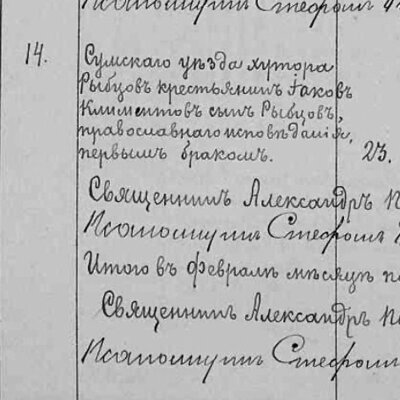 Псаломщикъ Стефанъ
14.
Сумскаго уѣзда хутора
Рыбцовъ крестьянинъ Іаковъ
Климентовъ сынъ Рыбцовъ,
православнаго исповѣданія,
первымъ бракомъ.
23.
Священникъ Александръ
Псаломщикъ Стефанъ
Итого въ Февралѣ мѣсяцѣ
Священникъ Александръ
Псаломщикъ Стефанъ